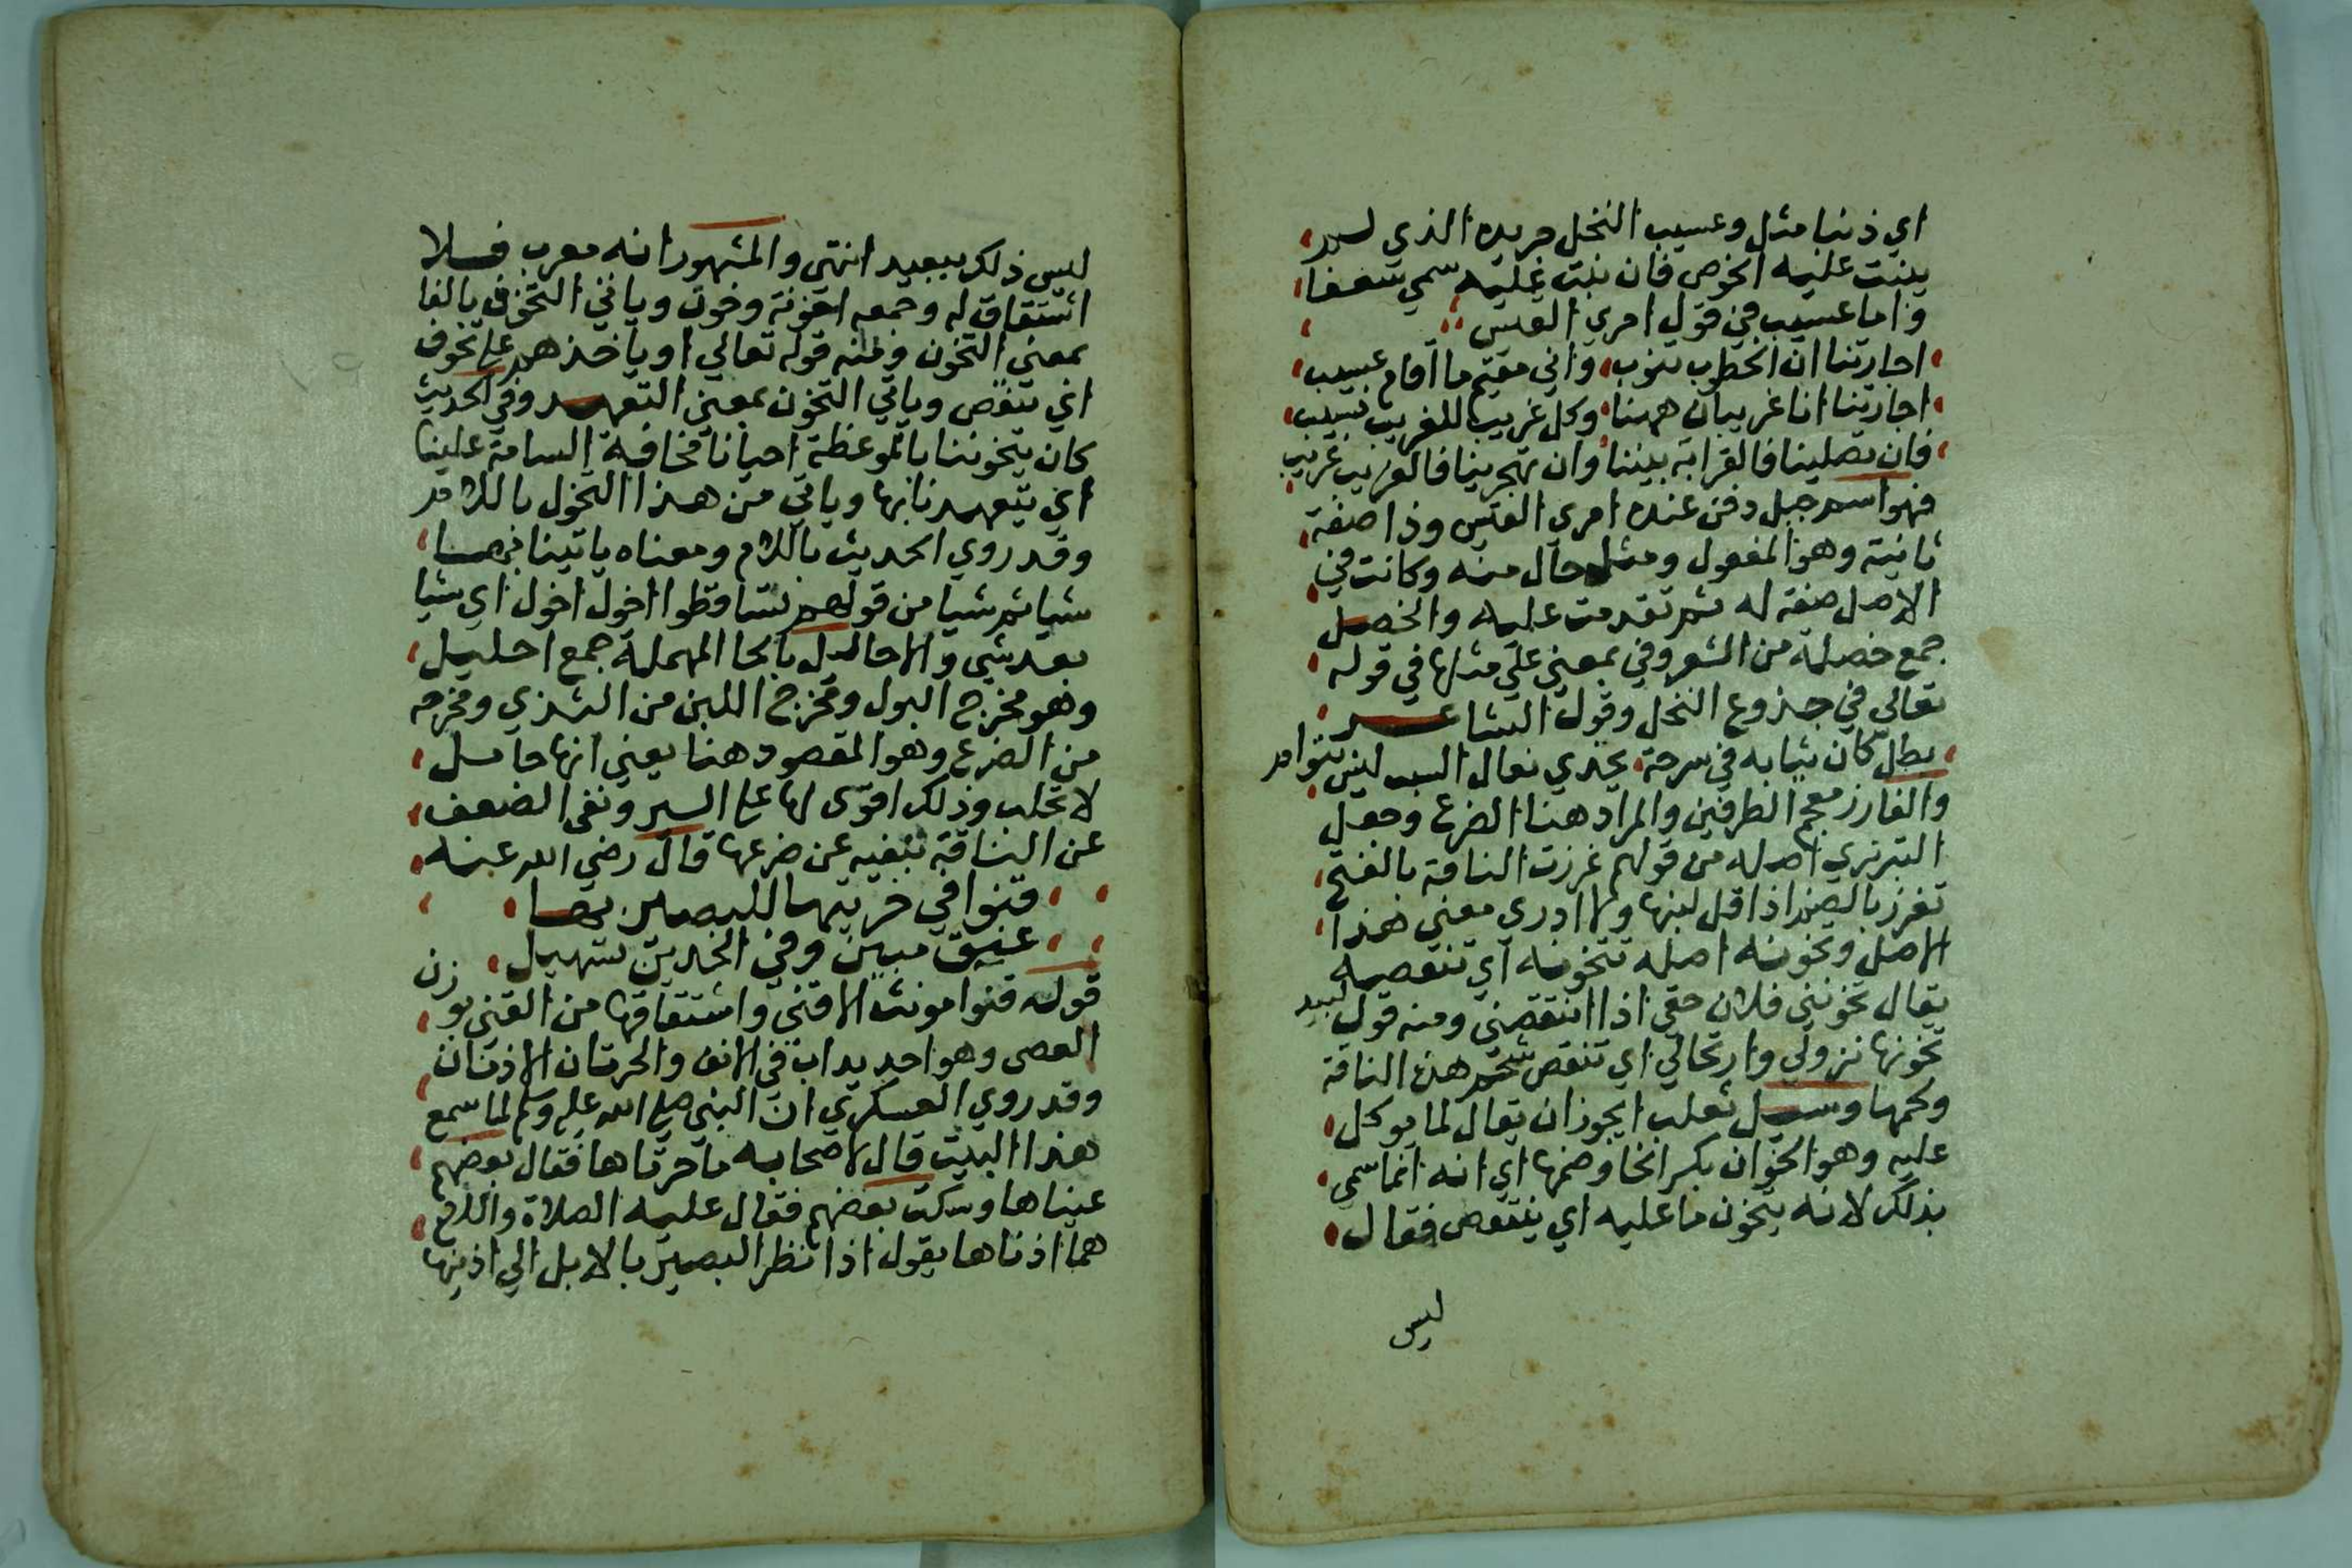 اي ذنبا مثل وعسيب النخل جريده الذي لم
ينبت عليه الخوص فان نبت عليه سمي سعفا
واما عسيب في قول امري القيس
اجارتنا ان الخطوب تنوب واني مقيم ما اقام عسيب
اجارتنا انا غريبان ههنا وكل غريب للغريب نسيب
فان تصلينا فالقرابة بيننا وان تهجرينا فالغريب غريب
فهو اسم جبل دفن عنده امري القيس وذا صفة
ثانية وهو المفعول ومثل حال منه وكانت في
الاصل صفة له ثم تقدمت عليه والخصل
جمع خصلة من الشعر وفي بمعني علي مثلها في قوله
تعالي في جذوع النخل وقول الشاعر
بطل كان ثيابه في سرحة يحذي نعال السبت ليس بتوام
والغارز معجم الطرفين والمراد هنا الضرع وجعل
التبريزي اصله من قولهم غرزت الناقة بالفتح
تغرز بالضم اذا قل لبنها ولا ادري معني هذا
الاصل وتخونه اصله تتخونه اي تنتقصه
يقال تخونني فلان حقي اذا انتقصني ومنه قول لبيد
تخونها نزولي وارتحالي اي تنقص شحم هذه الناقة
ولحمها وسيل ثعلب ايجوز ان يقال لما يوكل
عليه وهو الخوان بكسر الخا وضمها اي انه انما سمي
بذلك لانه يتخون ما عليه اي ينتقص فقال
ليس
ليس ذلك ببعيد انتهي والمشهور انه معرب فلا
اشتقاق له وجمعه اخونة وخون وياتي التخوف بالفا
بمعني التخون ومنه قوله تعالي او ياخذهم علي تخوف
اي تنقص وياتي التخون بمعني التعهد وفي الحديث
كان يتخوننا بالموعظة احيانا مخافة السامة علينا
اي يتعهدنا بها وياتي من هذا التخول باللام
وقد روي الحديث باللام ومعناه ياتينا بها
شيا ثم شيا من قولهم تساقطوا اخول اخول اي شيا
بعد شي والاحاليل بالحا المهملة جمع احليل
وهو مخرج البول ومخرج اللبن من الثدي ومخرجه
من الضرع وهو المقصود هنا يعني انها حايل
لا تحلب وذلك اقوي لها علي السير ونفي الضعف
عن الناقة بنفيه عن ضرعها قال رضي الله عنه
قنوا في حرتيها للبصير بها
عتق مبين وفي الخدين تسهيل
قوله قنوا مونث الاقني واشتقاقها من القني بوزن
العصى وهو احديداب في الانف والحرتان الاذنان
وقد روي العسكري ان النبي صلي الله عليه وسلم لما سمع
هذا البيت قال لاصحابه ما حرتاها فقال بعضهم
عيناها وسكت بعضهم فقال عليه الصلاة والسلام
هما اذناها يقول اذا نظر البصير بالابل الي اذنيها